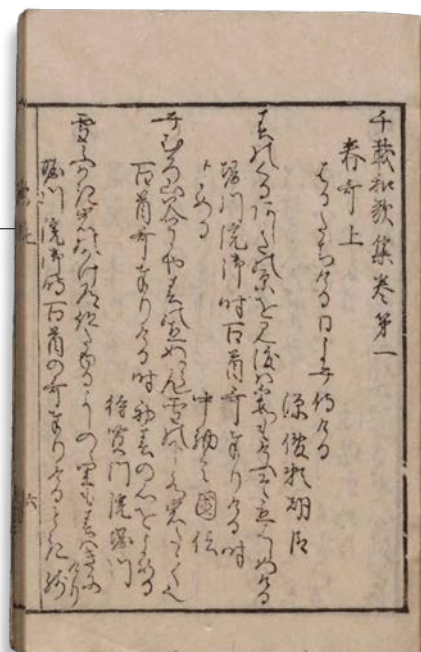 千載和歌集巻第一
春哥上
はるたちける日よみ侍ける
源俊頼朝臣
春のくるあしたの原を見渡は霞もけふそ立はしめける
堀川院御時百首哥奉りける時
よめる
中納言國信
みむろ山谷にや春の立ぬらん雪の下水岩たゝく也
百首哥奉りける時初春の心をよめる
待賢門院堀川
雪ふかき岩のかけ道跡たゆるよしのゝ里も春はきにけり
堀川院御時百首の哥奉りけるとき残
六